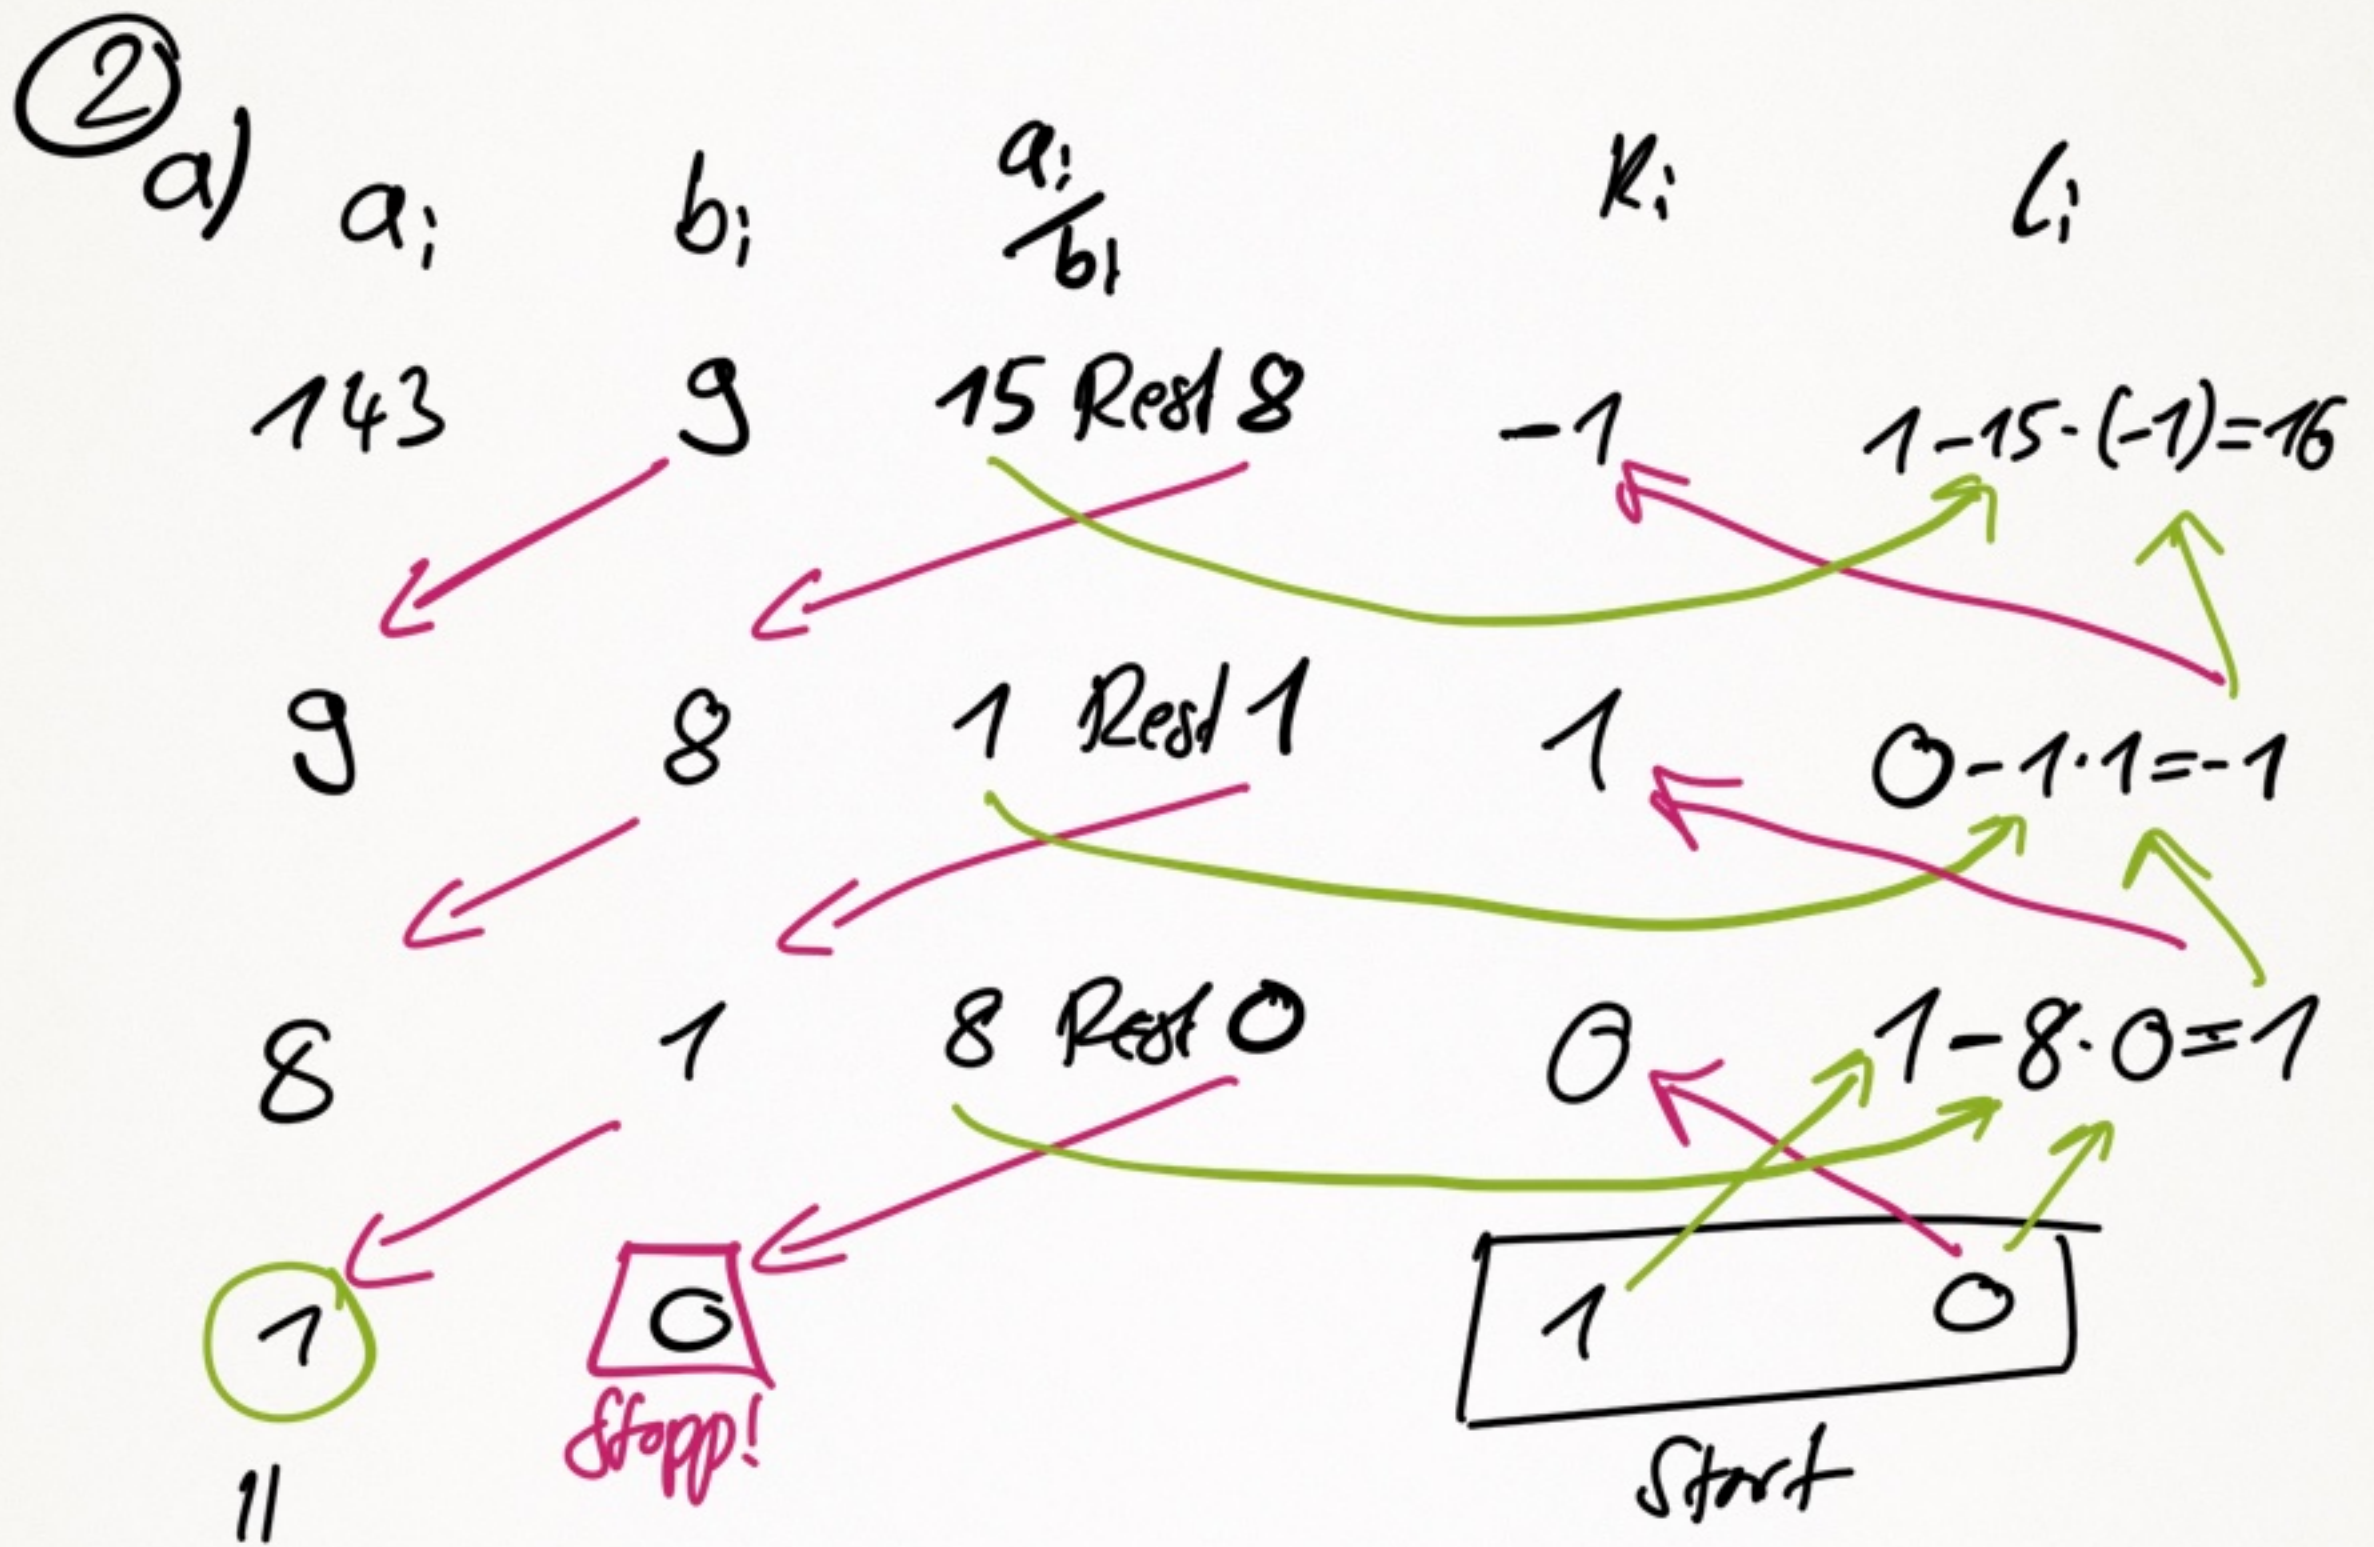 ②
a) aᵢ bᵢ aᵢ/bᵢ kᵢ lᵢ
143 9 15 Rest 8 -1 1-15·(-1)=16
9 8 1 Rest 1 1 0-1·1=-1
8 1 8 Rest 0 0 1-8·0=1
1 0 1 0
Stopp! Start
||